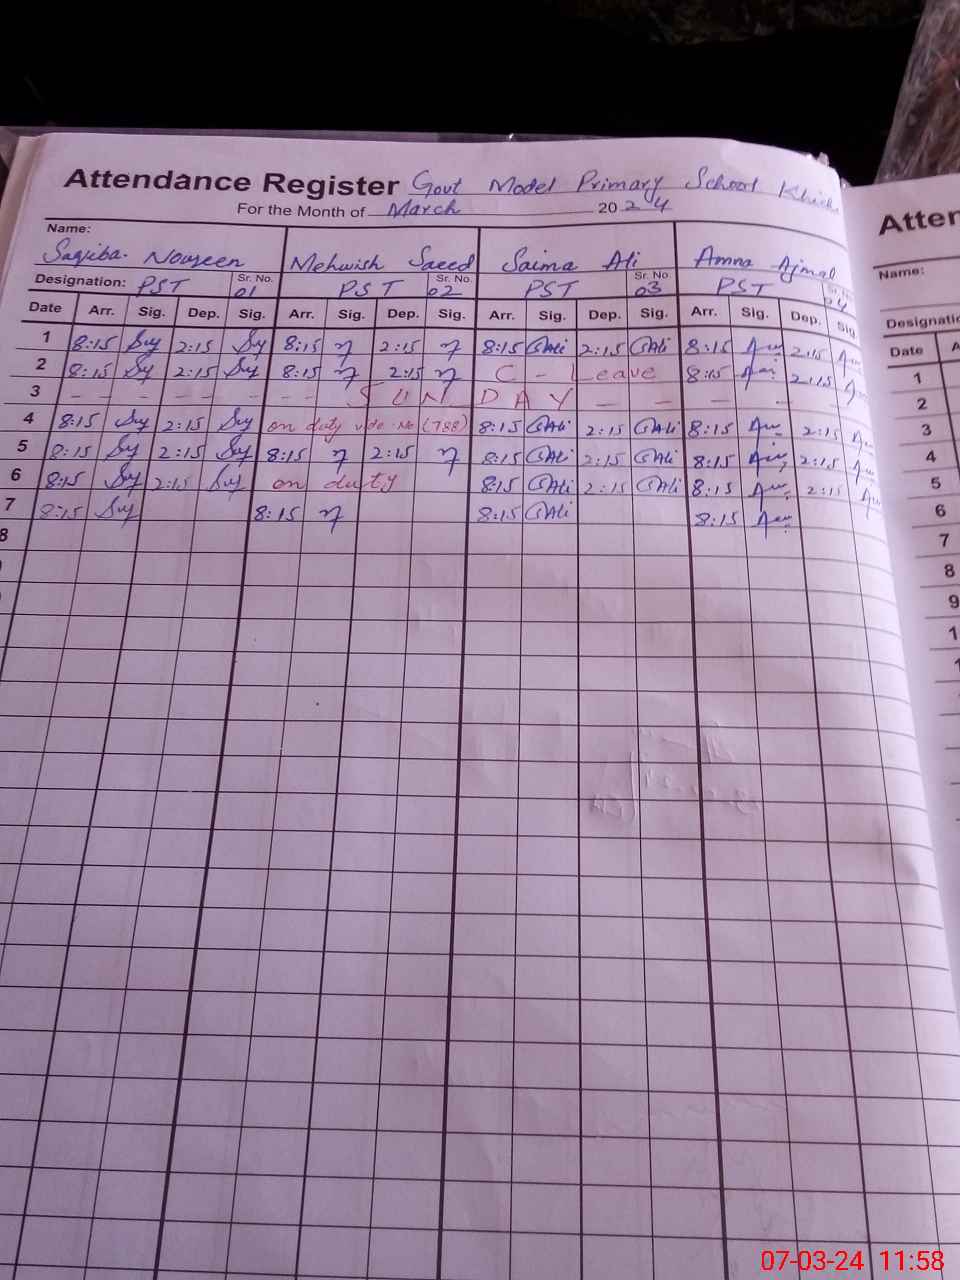 Attendance Register Govt Model Primary School
For the Month of March 2024
Name:
Saqiba Noureen Mehwish Saeed Saima Ali Amna Ajmal
Designation: PST Sr. No. 01 PST Sr. No. 02 PST Sr. No. 03 PST Sr. No. 04
Date Arr. Sig. Dep. Sig. Arr. Sig. Dep. Sig. Arr. Sig. Dep. Sig. Arr. Sig. Dep. Sig.
1 8:15 2:15 8:15 2:15 8:15 Ali 2:15 Ali 8:15 2:15
2 8:15 2:15 8:15 2:15 C - Leave 8:15 2:15
3 - - - - - - - S U N D A Y - - - -
4 8:15 2:15 on duty vde No (788) 8:15 Ali 2:15 Ali 8:15 2:15
5 8:15 2:15 8:15 2:15 8:15 Ali 2:15 Ali 8:15 2:15
6 8:15 2:15 on duty 8:15 Ali 2:15 Ali 8:15 2:15
7 8:15 8:15 8:15 Ali 8:15
8
Atten
Name:
Designatio
Date A
1
2
3
4
5
6
7
8
9
1
07-03-24 11:58